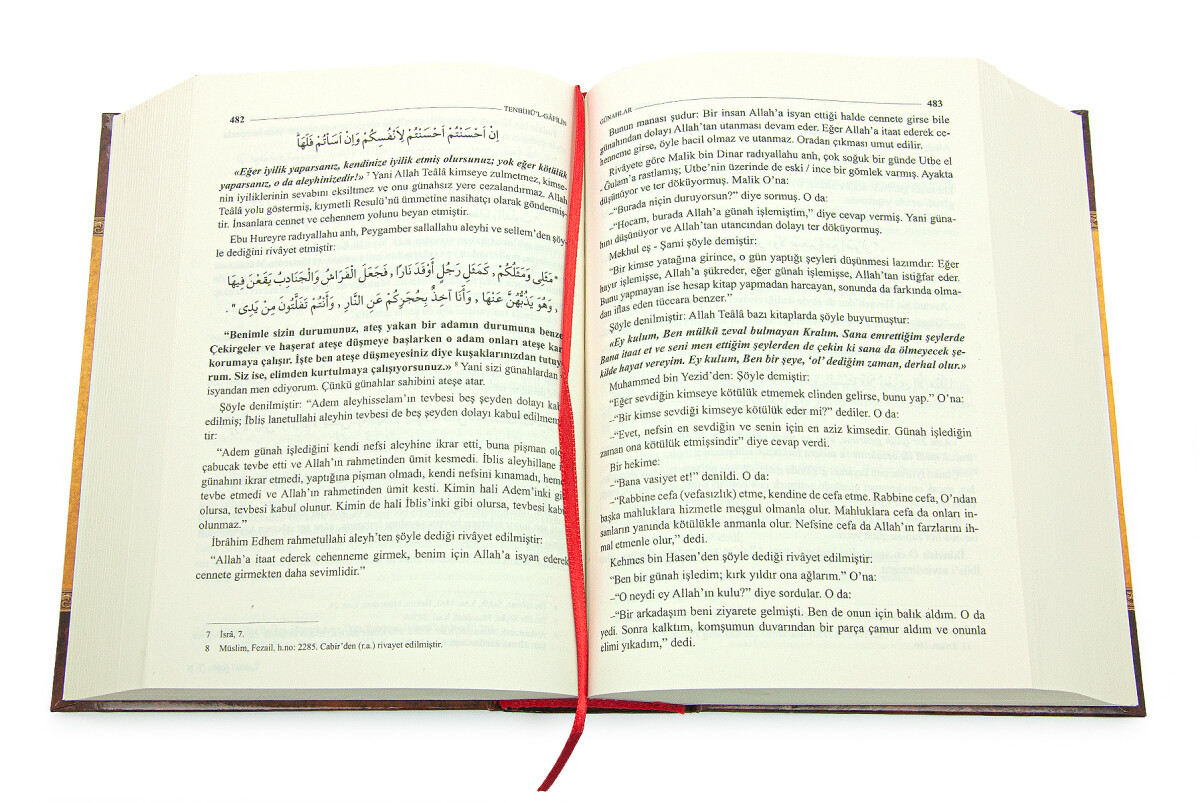 482
TENBÎHÜ'L-GÂFİLÎN
اِنْ اَحْسَنْتُمْ اَحْسَنْتُمْ لِاَنْفُسِكُمْ وَاِنْ اَسَاْتُمْ فَلَهَاۜ
«Eğer iyilik yaparsanız, kendinize iyilik etmiş olursunuz; yok eğer kötülük
yaparsanız, o da aleyhinizedir!» 7 Yani Allah Teâlâ kimseye zulmetmez, kimse-
nin iyiliklerinin sevabını eksiltmez ve onu günahsız yere cezalandırmaz. Allah
Teâlâ yolu göstermiş, kıymetli Resulü'nü ümmetine nasihatçı olarak göndermiş-
tir. İnsanlara cennet ve cehennem yolunu beyan etmiştir.
Ebu Hureyre radıyallahu anh, Peygamber sallallahu aleyhi ve sellem'den şöy-
le dediğini rivâyet etmiştir:
"مَثَلِى وَمَثَلُكُمْ , كَمَثَلِ رَجُلٍ أَوْقَدَ نَارًا , فَجَعَلَ الْفَرَاشُ وَالْجَنَادِبُ يَقَعْنَ فِيهَا
, وَهُوَ يَذُبُّهُنَّ عَنْهَا , وَأَنَا آخِذٌ بِحُجَزِكُمْ عَنِ النَّارِ , وَأَنْتُمْ تَفَلَّتُونَ مِنْ يَدِى " .
“Benimle sizin durumunuz, ateş yakan bir adamın durumuna benze
Çekirgeler ve haşerat ateşe düşmeye başlarken o adam onları ateşe kar
korumaya çalışır. İşte ben ateşe düşmeyesiniz diye kuşaklarınızdan tutuyo
rum. Siz ise, elimden kurtulmaya çalışıyorsunuz.» 8 Yani sizi günahlardan
isyandan men ediyorum. Çünkü günahlar sahibini ateşe atar.
Şöyle denilmiştir: “Adem aleyhisselam'ın tevbesi beş şeyden dolayı kab
edilmiş; İbliş lanetullahi aleyhin tevbesi de beş şeyden dolayı kabul edilmem
tir:
“Adem günah işlediğini kendi nefsi aleyhine ikrar etti, buna pişman old
çabucak tevbe etti ve Allah'ın rahmetinden ümit kesmedi. İblis aleyhillane i
günahını ikrar etmedi, yaptığına pişman olmadı, kendi nefsini kınamadı, heme
tevbe etmedi ve Allah'ın rahmetinden ümit kesti. Kimin hali Adem'inki gi
olursa, tevbesi kabul olunur. Kimin de hali İblis'inki gibi olursa, tevbesi kabu
olunmaz.”
İbrâhim Edhem rahmetullahi aleyh'ten şöyle dediği rivâyet edilmiştir:
“Allah'a itaat ederek cehenneme girmek, benim için Allah'a isyan ederek
cennete girmekten daha sevimlidir.”
7 İsrâ, 7.
8 Müslim, Fezail, h.no: 2285. Cabir'den (r.a.) rivayet edilmiştir.
GÜNAHLAR
483
Bunun manası şudur: Bir insan Allah'a isyan ettiği halde cennete girse bile
günahından dolayı Allah'tan utanması devam eder. Eğer Allah'a itaat ederek ce-
henneme girse, öyle hacil olmaz ve utanmaz. Oradan çıkması umut edilir.
Rivâyete göre Malik bin Dinar radıyallahu anh, çok soğuk bir günde Utbe el
- Ğulam'a rastlamış; Utbe'nin üzerinde de eski / ince bir gömlek varmış. Ayakta
düşünüyor ve ter döküyormuş. Malik O'na:
–“Burada niçin duruyorsun?” diye sormuş. O da:
–“Hocam, burada Allah'a günah işlemiştim,” diye cevap vermiş. Yani güna-
hını düşünüyor ve Allah'tan utancından dolayı ter döküyormuş.
Mekhul eş - Şami şöyle demiştir:
“Bir kimse yatağına girince, o gün yaptığı şeyleri düşünmesi lazımdır: Eğer
hayır işlemişse, Allah'a şükreder, eğer günah işlemişse, Allah'tan istiğfar eder.
Bunu yapmayan ise hesap kitap yapmadan harcayan, sonunda da farkında olma-
dan iflas eden tüccara benzer.”
Şöyle denilmiştir: Allah Teâlâ bazı kitaplarda şöyle buyurmuştur:
«Ey kulum, Ben mülkü zeval bulmayan Kralım. Sana emrettiğim şeylerde
Bana itaat et ve seni men ettiğim şeylerden de çekin ki sana da ölmeyecek şe-
kilde hayat vereyim. Ey kulum, Ben bir şeye, ‘ol’ dediğim zaman, derhal olur.»
Muhammed bin Yezid'den: Şöyle demiştir:
“Eğer sevdiğin kimseye kötülük etmemek elinden gelirse, bunu yap.” O'na:
–“Bir kimse sevdiği kimseye kötülük eder mi?” dediler. O da:
–“Evet, nefsin en sevdiğin ve senin için en aziz kimsedir. Günah işlediğin
zaman ona kötülük etmişsindir” diye cevap verdi.
Bir hekime:
–“Bana vasiyet et!” denildi. O da:
–“Rabbine cefa (vefasızlık) etme, kendine de cefa etme. Rabbine cefa, O'ndan
başka mahluklara hizmetle meşgul olmanla olur. Mahluklara cefa da onları in-
sanların yanında kötülükle anmanla olur. Nefsine cefa da Allah'ın farzlarını ih-
mal etmenle olur,” dedi.
Kehmes bin Hasen'den şöyle dediği rivâyet edilmiştir:
“Ben bir günah işledim; kırk yıldır ona ağlarım.” O'na:
–“O neydi ey Allah'ın kulu?” diye sordular. O da:
–“Bir arkadaşım beni ziyarete gelmişti. Ben de onun için balık aldım. O da
yedi. Sonra kalktım, komşumun duvarından bir parça çamur aldım ve onunla
elimi yıkadım,” dedi.